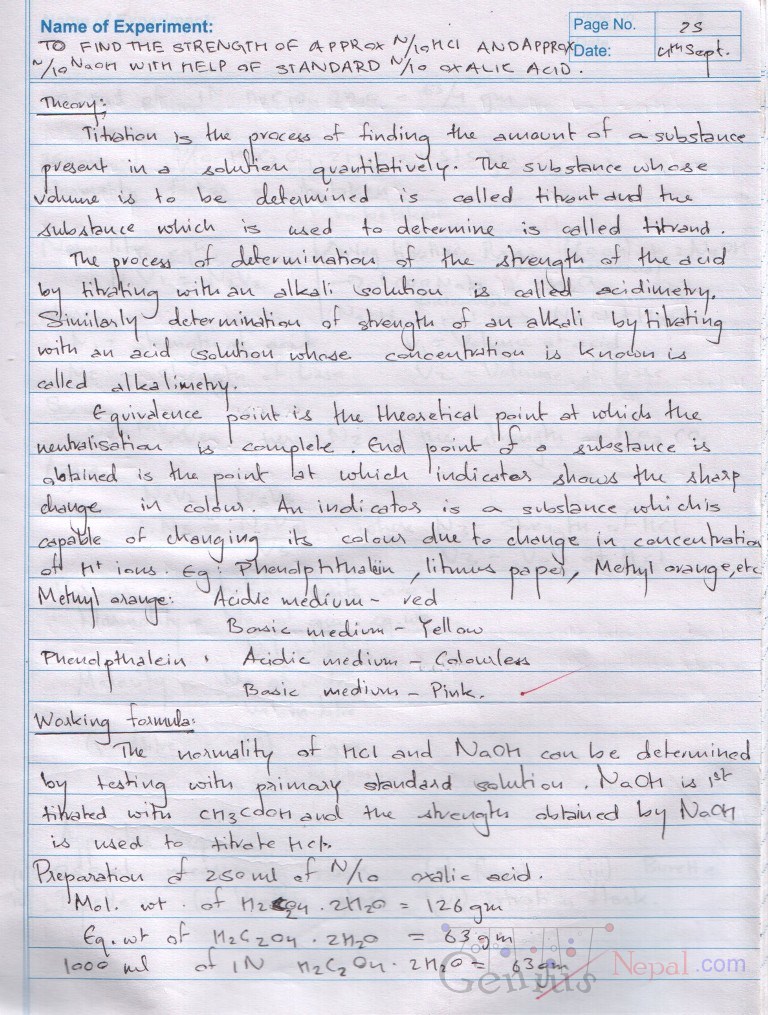 Name of Experiment:
Page No. 25
TO FIND THE STRENGTH OF APPROX N/10 HCl AND APPROX
Date: 4th Sept.
N/10 NaOH WITH HELP OF STANDARD N/10 OXALIC ACID.
Theory:
Titration is the process of finding the amount of a substance
present in a solution quantitatively. The substance whose
volume is to be determined is called titrant and the
substance which is used to determine is called titrand.
The process of determination of the strength of the acid
by titrating with an alkali solution is called acidimetry.
Similarly determination of strength of an alkali by titrating
with an acid solution whose concentration is known is
called alkalimetry.
Equivalence point is the theoretical point at which the
neutralisation is complete. End point of a substance is
obtained is the point at which indicator shows the sharp
change in colour. An indicator is a substance which is
capable of changing its colour due to change in concentration
of H+ ions. Eg: Phenolphthalein, litmus paper, Methyl orange, etc
Methyl orange: Acidic medium - red
Basic medium - Yellow
Phenolpthalein: Acidic medium - Colourless
Basic medium - Pink.
Working formula:
The normality of HCl and NaOH can be determined
by testing with primary standard solution. NaOH is 1st
titrated with CH3COOH and the strength obtained by NaOH
is used to titrate HCl.
Preparation of 250 ml of N/10 oxalic acid.
Mol. wt. of H2C2O4 . 2H2O = 126 gm
Eq. wt of H2C2O4 . 2H2O = 63 gm
1000 ml of 1N H2C2O4 . 2H2O = 63 gm
Genius Nepal.com